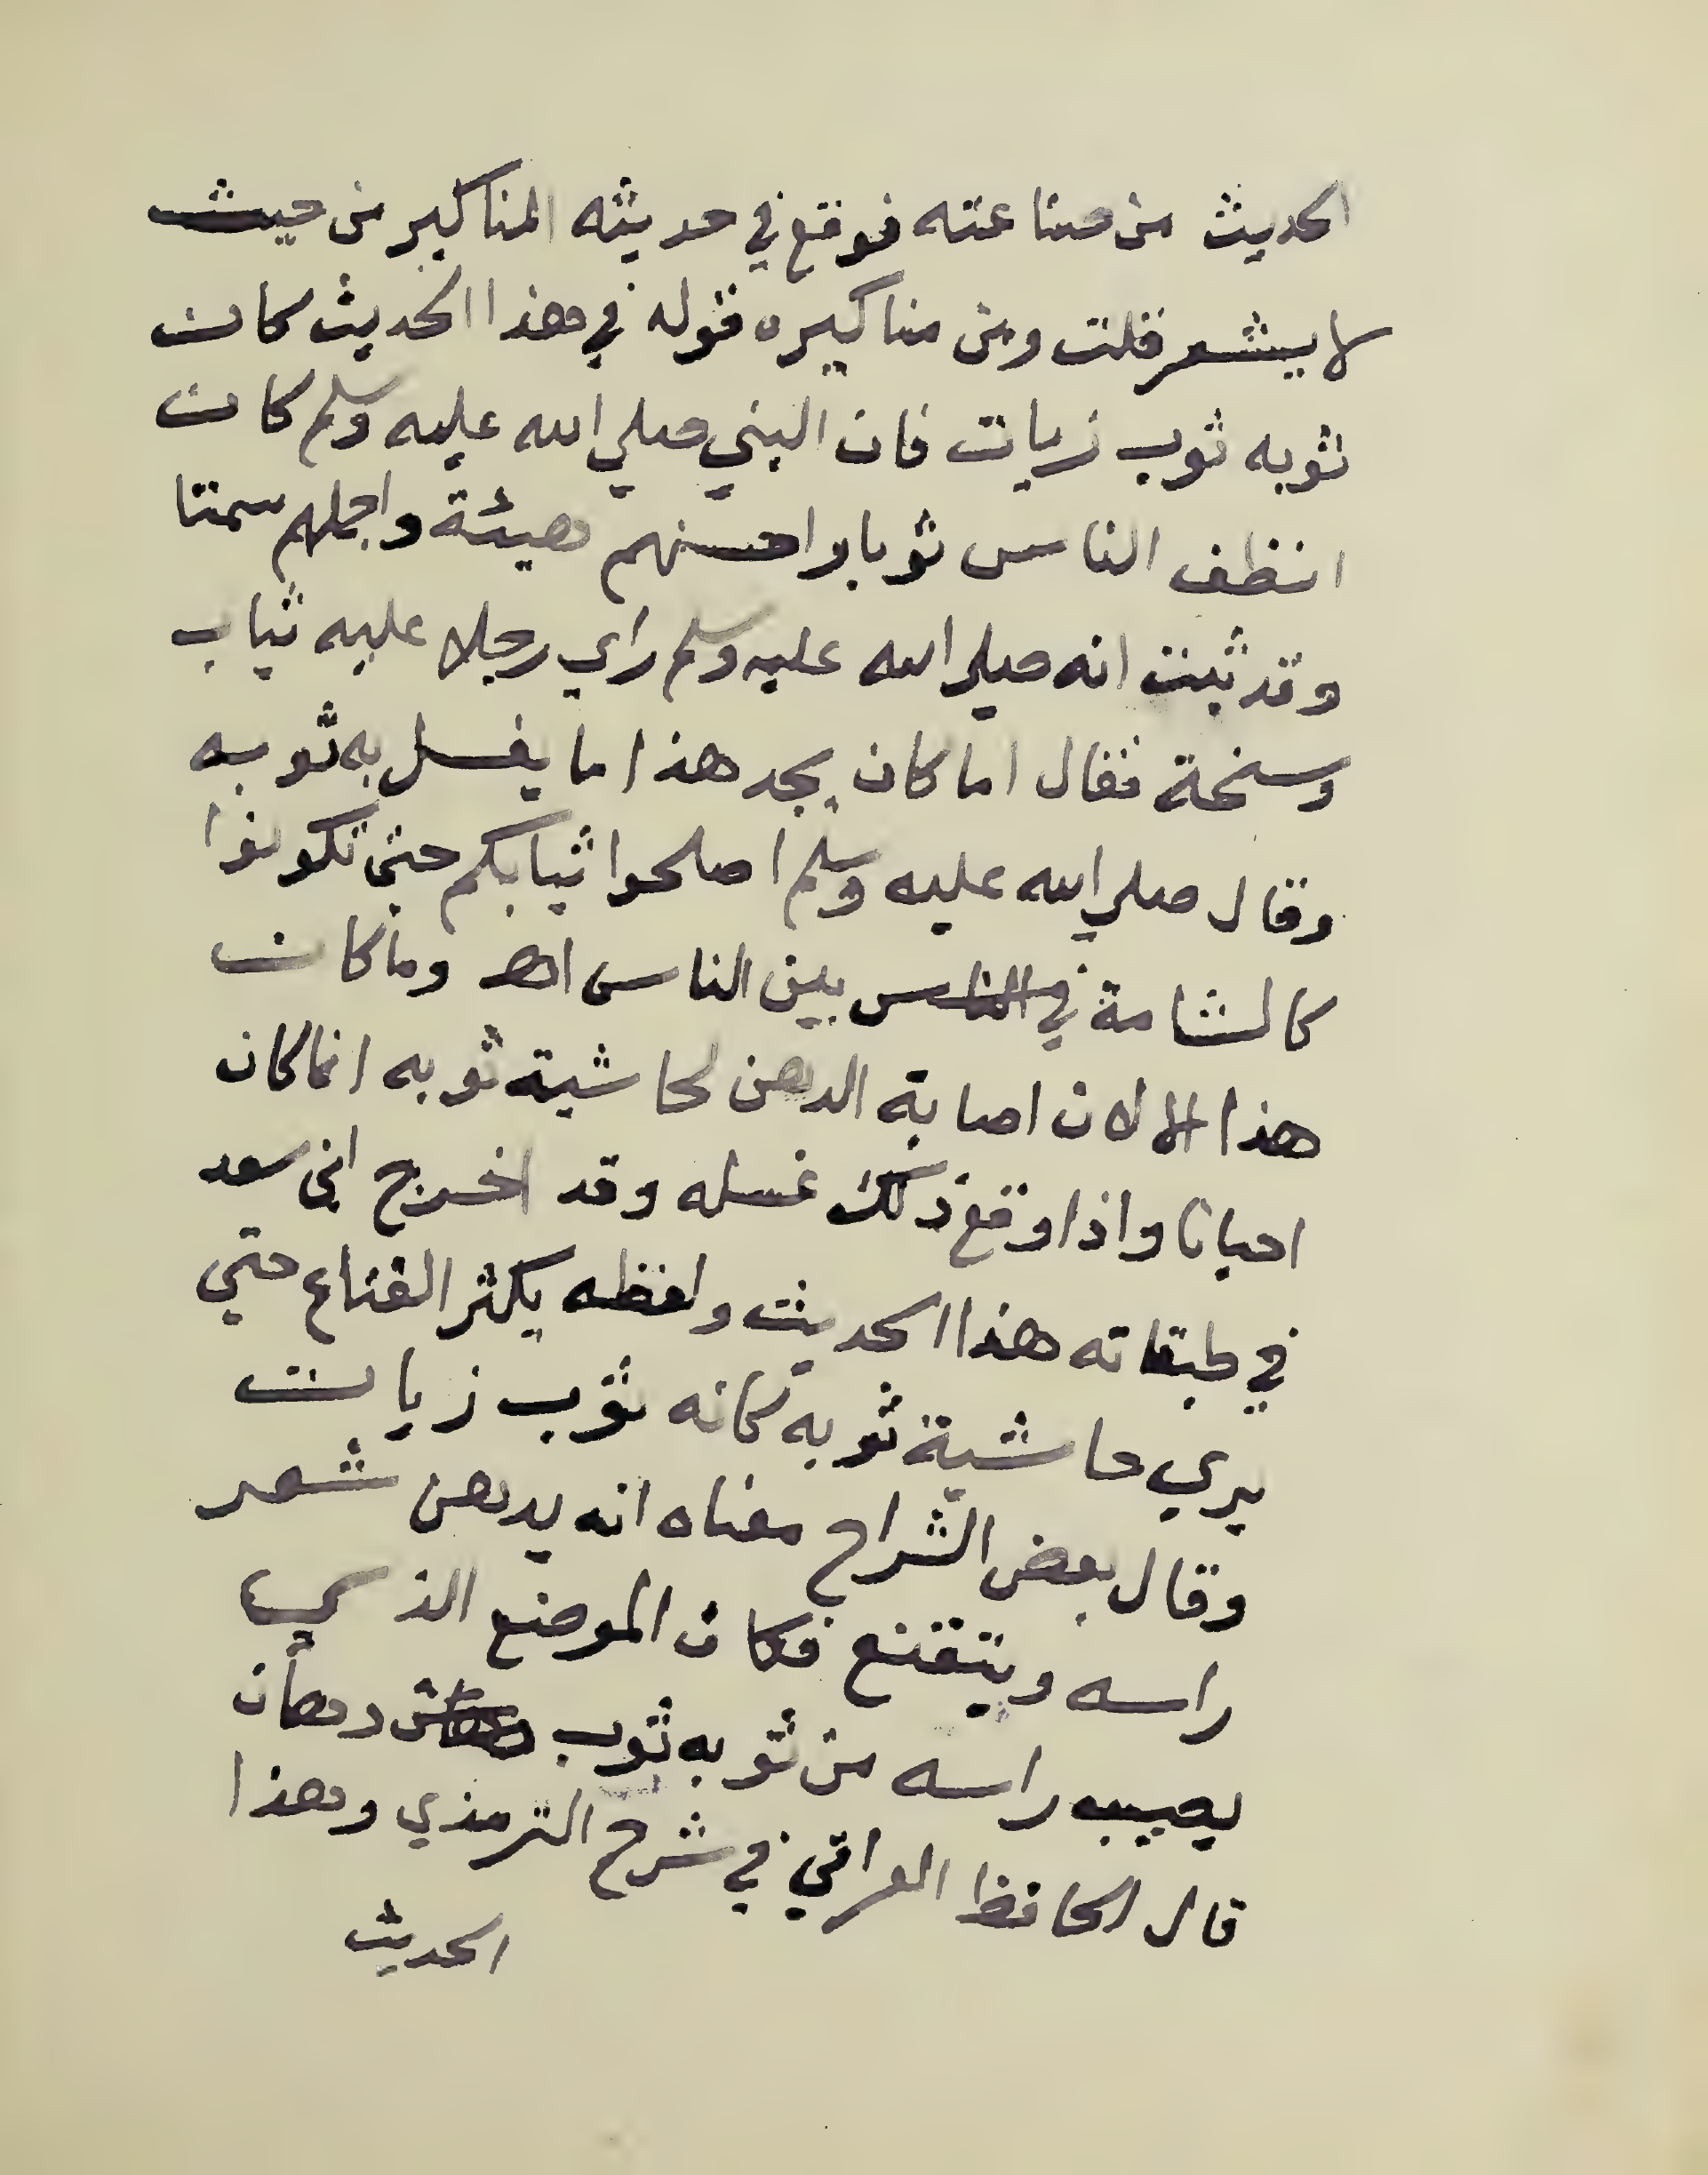 الحديث من صناعته فوقع في حديثه المناكير من حيث
لا يشعر قلت ومن مناكيره قوله في هذا الحديث كان
ثوبه ثوب زيات فان النبي صلي الله عليه وسلم كان
انظف الناس ثوبا واحسنهم هيئة واجملهم سمتا
وقد ثبت انه صلي الله عليه وسلم راي رجلا عليه ثياب
وسخة فقال اما كان يجد هذا ما يغسل به ثوبه
وقال صلي الله عليه وسلم اصلحوا ثيابكم حتي تكونوا
كالشامة في الناس بين الناس اهـ وما كان
هذا الا لان اصابة الدهن لحاشية ثوبه انما كان
احيانا واذا وقع ذلك غسله وقد اخرج ابن سعد
في طبقاته هذا الحديث ولفظه يكثر القناع حتي
يري حاشية ثوبه كانه ثوب زيات
وقال بعض الشراح معناه انه يدهن شعر
راسه ويتقنع فكان الموضع الذي
يصيب راسه من ثوبه ثوب دهان
قال الحافظ العراقي في شرح الترمذي وهذا
الحديث